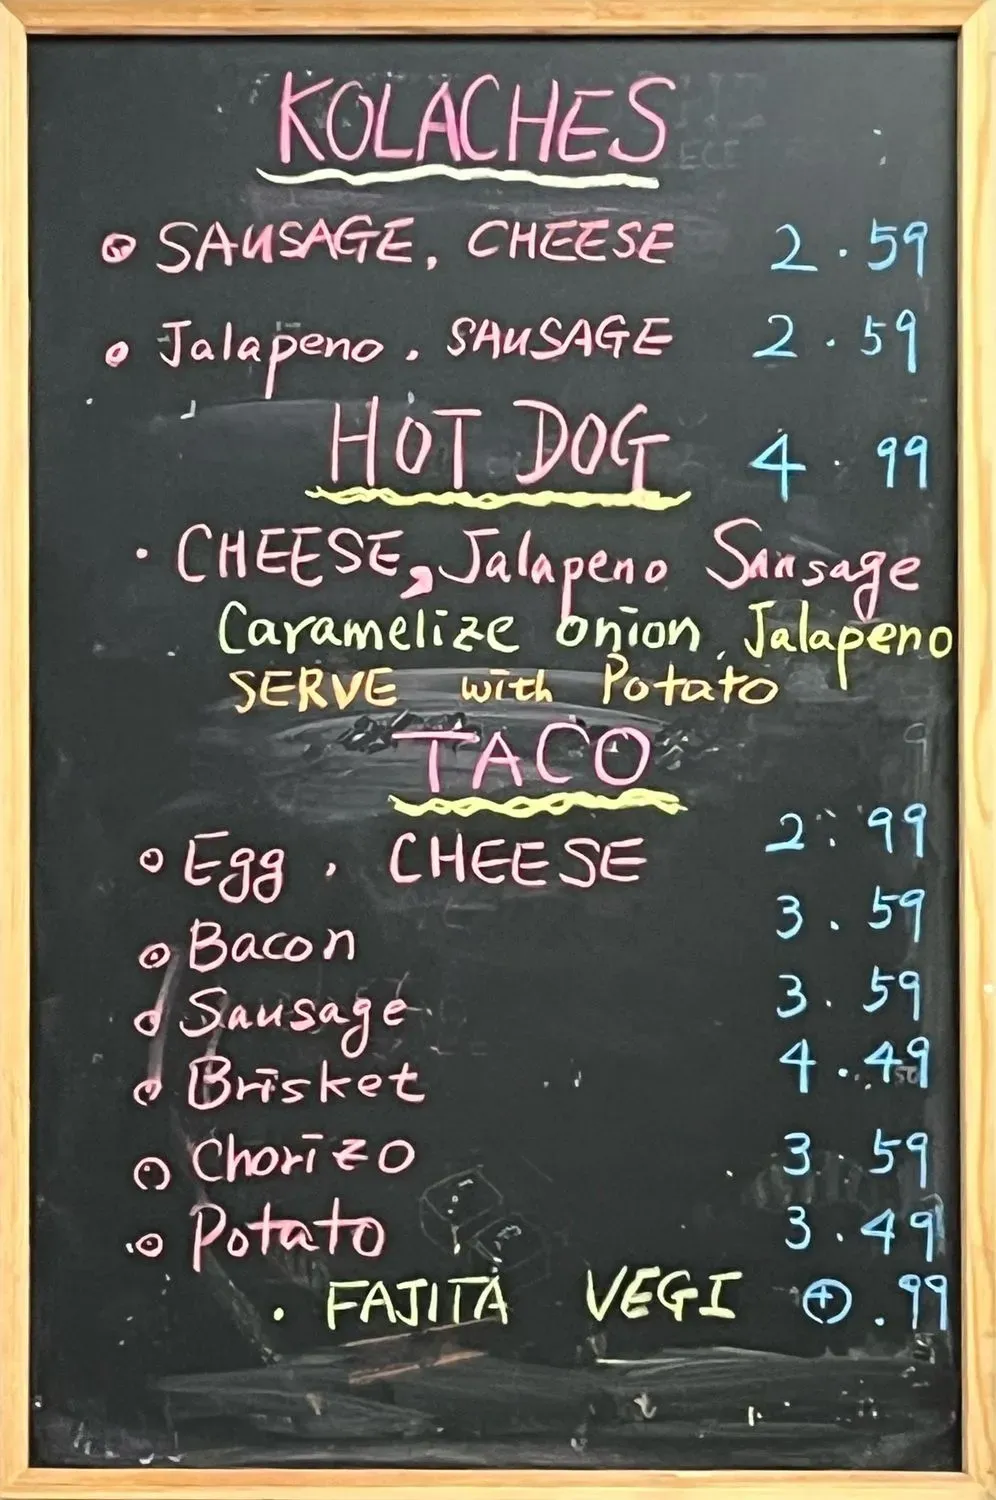 KOLACHES
SAUSAGE, CHEESE 2.59
Jalapeno, SAUSAGE 2.59
HOT DOG 4.99
• CHEESE, Jalapeno Sausage
Caramelize onion, Jalapeno
SERVE with Potato
TACO
Egg, CHEESE 2.99
Bacon 3.59
Sausage 3.59
Brisket 4.49
Chorizo 3.59
Potato 3.49
• FAJITA VEGI ⊕.99